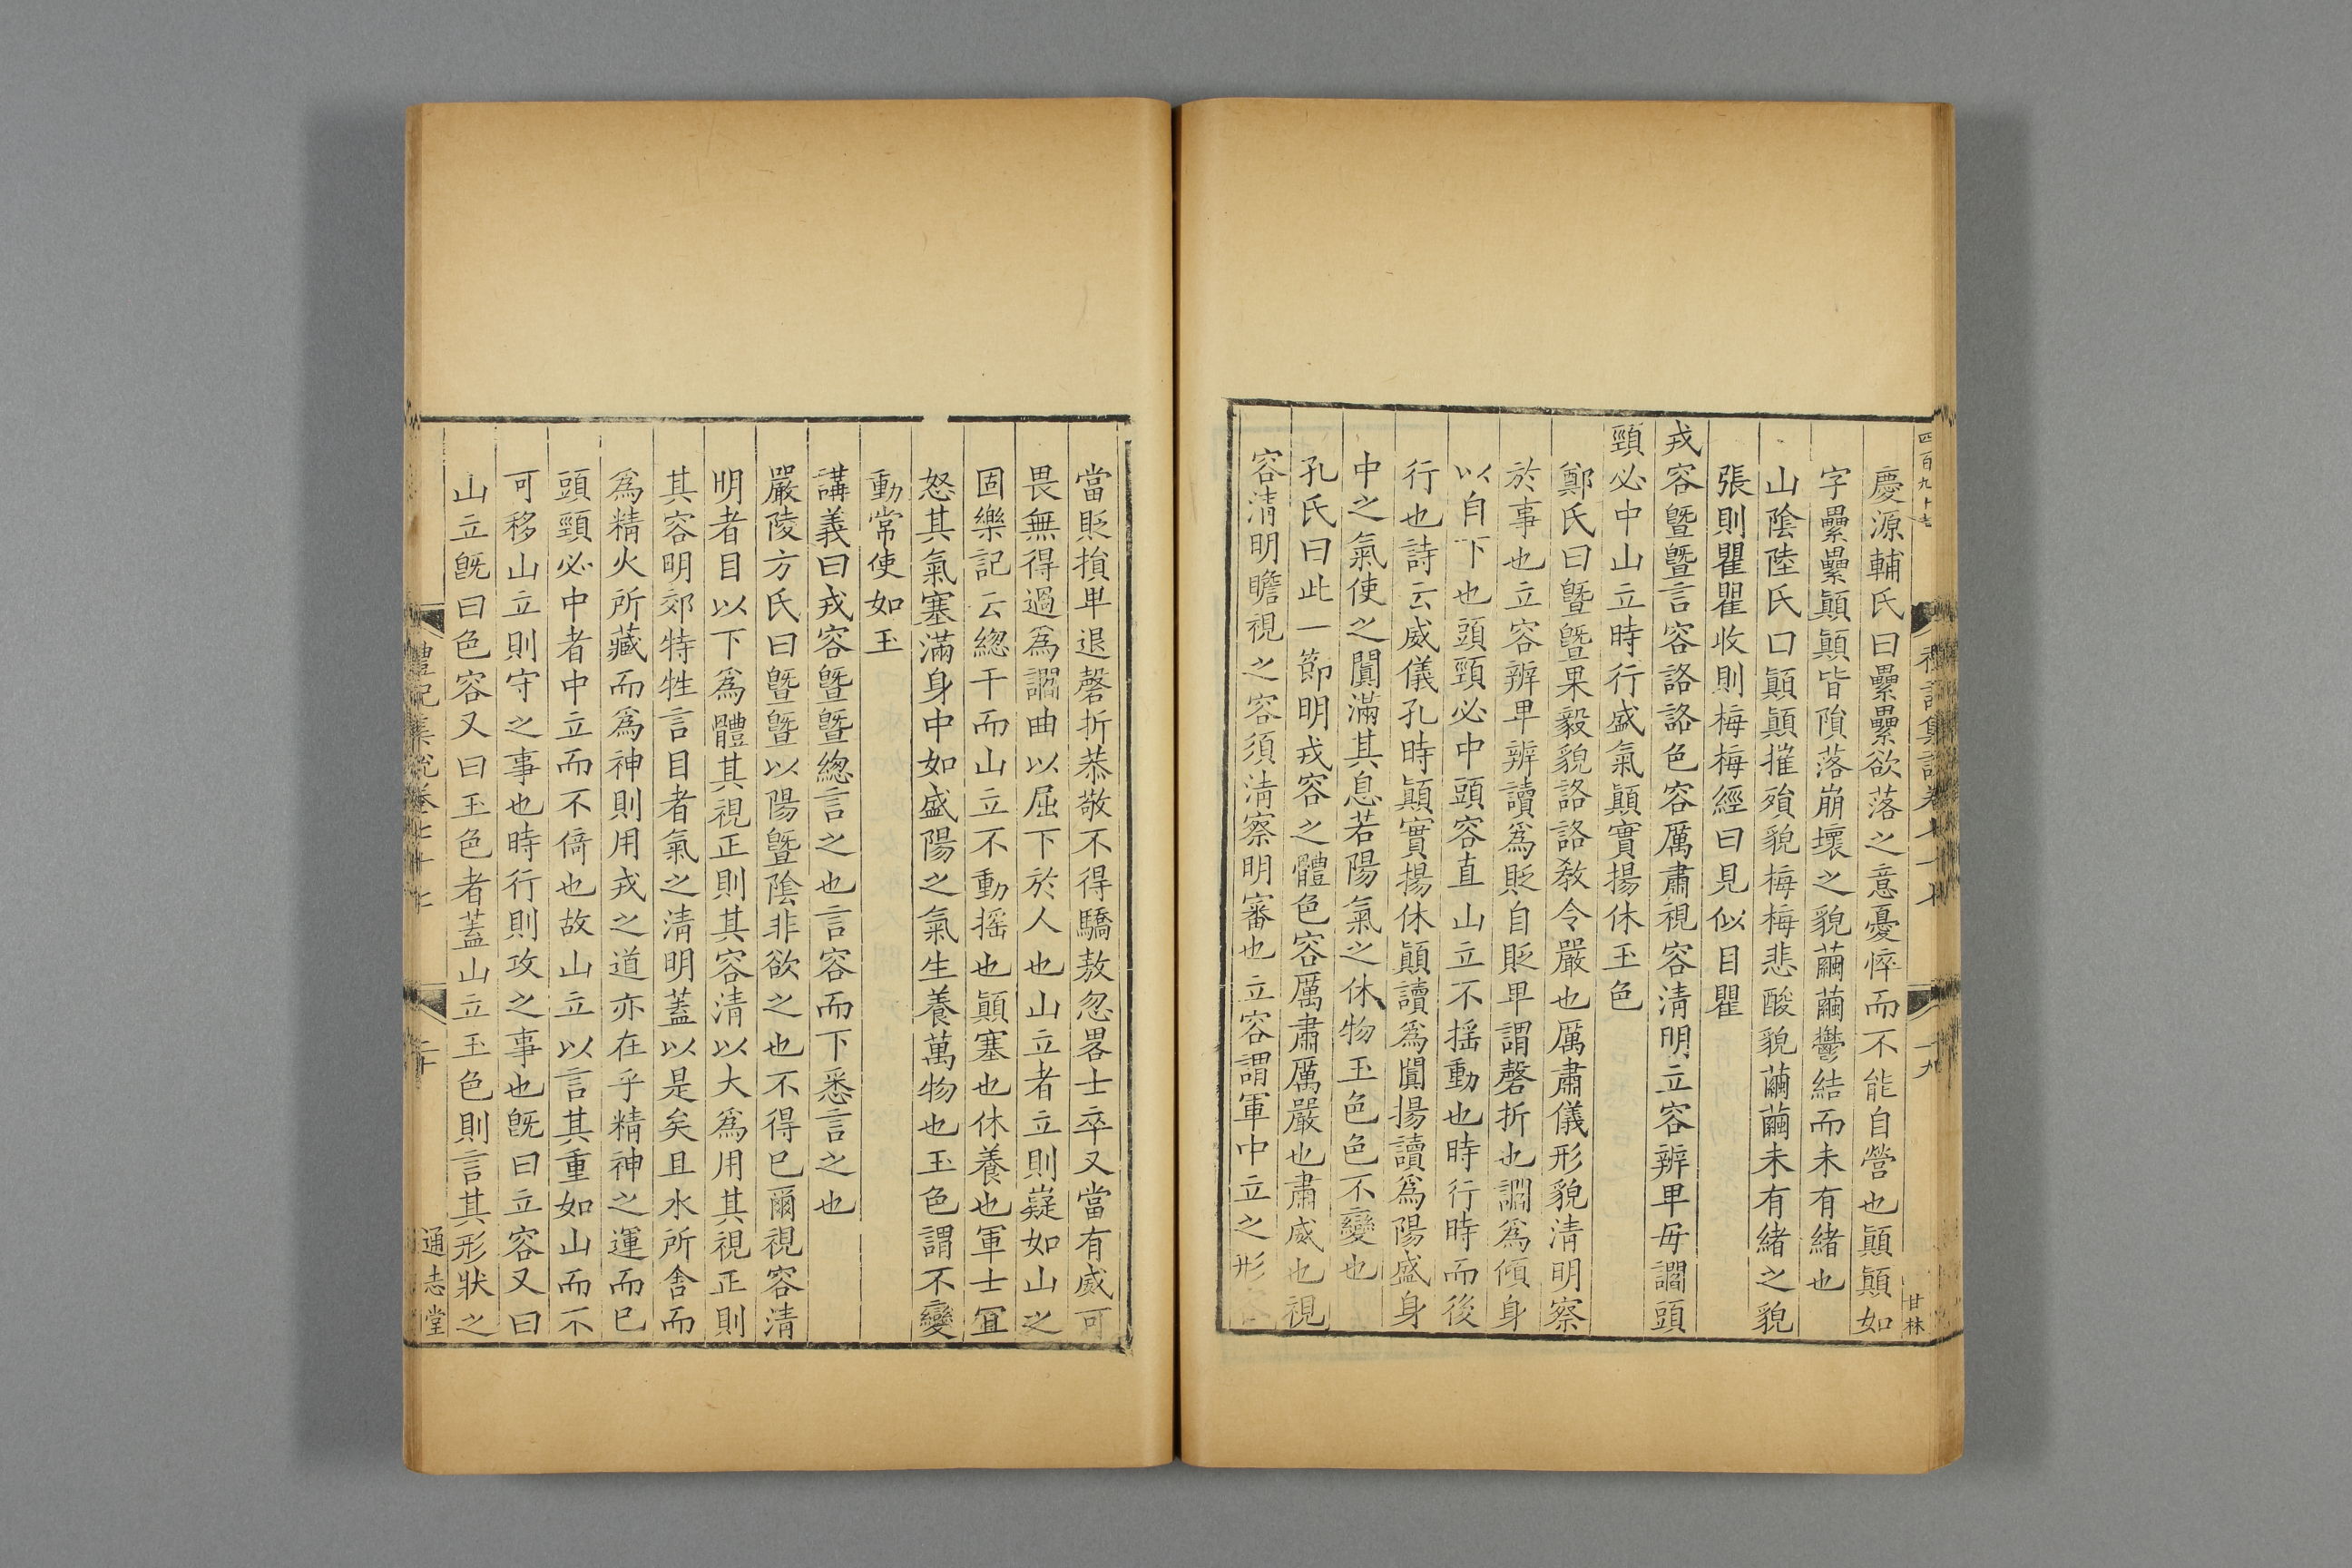 慶源輔氏曰纍纍欲落之意憂悴而不能自營也顚顚如
字纍纍顚顚皆隕落崩壞之貌繭繭鬱結而未有緒也
山陰陸氏曰顚顚摧殞貌梅梅悲酸貌繭繭未有緒之貌
張則瞿瞿收則梅梅經曰見似目瞿
戎容暨暨言容詻詻色容厲肅視容淸明立容辨卑毋讇頭
頸必中山立時行盛氣顚實揚休玉色
鄭氏曰暨暨果毅貌詻詻敎令嚴也厲肅儀形貌淸明察
於事也立容辨卑辨讀爲貶自貶卑謂磬折也讇爲傾身
以自下也頭頸必中頭容直山立不搖動也時行時而後
行也詩云威儀孔時顚實揚休顚讀爲闐揚讀爲陽盛身
中之氣使之闐滿其息若陽氣之休物玉色色不變也
孔氏曰此一節明戎容之體色容厲肅厲嚴也肅威也視
容淸明瞻視之容須淸察明審也立容謂軍中立之形
當貶損卑退磬折恭敬不得驕敖忽畧士卒又當有威可
畏無得過爲讇曲以屈下於人也山立者立則嶷如山之
固樂記云緫干而山立不動搖也顚塞也休養也軍士宜
怒其氣塞滿身中如盛陽之氣生養萬物也玉色謂不變
動常使如玉
講義曰戎容暨暨緫言之也言容而下悉言之也
嚴陵方氏曰暨暨以陽暨陰非欲之也不得已爾視容淸
明者目以下爲體其視正則其容淸以大爲用其視正則
其容明郊特牲言目者氣之淸明蓋以是矣且水所舍而
爲精火所藏而爲神則用戎之道亦在乎精神之運而已
頭頸必中者中立而不倚也故山立以言其重如山而不
可移山立則守之事也時行則攻之事也旣曰立容又曰
山立旣曰色容又曰玉色者蓋山立玉色則言其形狀之
禮記集說卷七十七
二十
通志堂